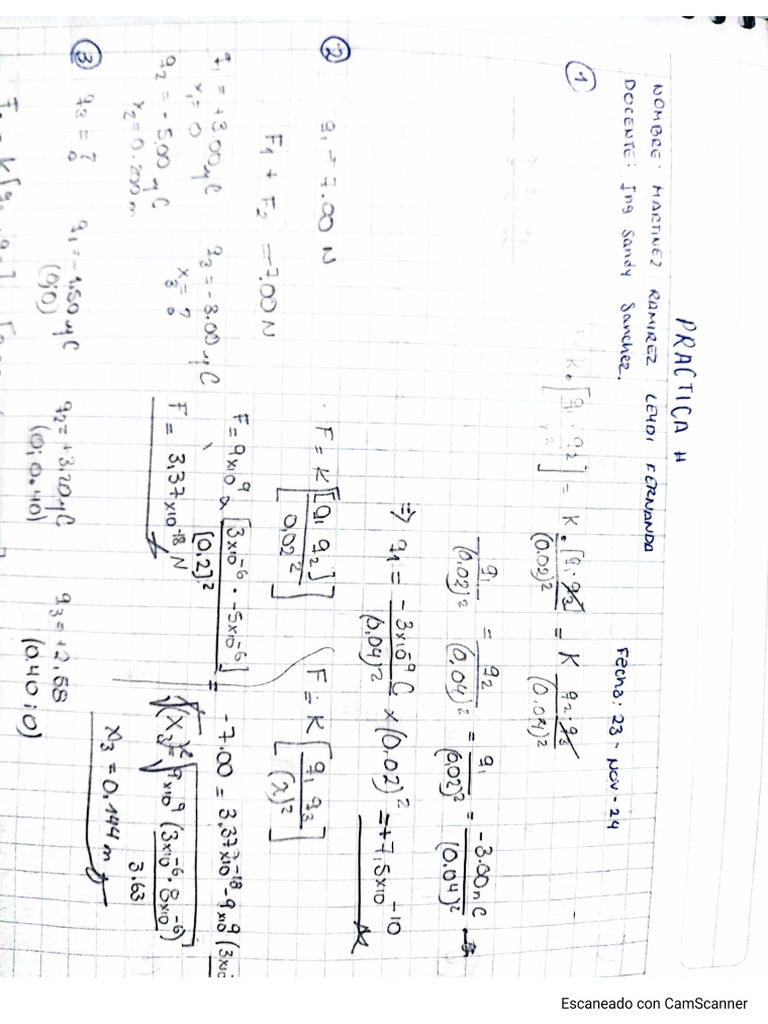 PRACTICA #
NOMBRE: MARTINEZ RAMIREZ LEYDI FERNANDA
Fecha: 23 - NOV - 24
DOCENTE: Ing Sandy Sanchez.
① F = K. [q1 · q2 / r²] = K. [q1 · q3 / (0.02)²] = K q2 · q3 / (0.04)²
q1 / (0.02)² = q2 / (0.04)² = q1 / (0.02)² = -3.00nC / (0.04)²
=> q1 = -3x10⁻⁹ C / (0,04)² x (0.02)² = +7,5x10⁻¹⁰
② q1 = 7.00 N
F1 + F2 = -7.00 N
F = K [[q1 q2] / 0,02²]
F = K [q1 q3 / (x)²]
q1 = +3.00 μC
x1 = 0
q2 = -5.00 μC
x2 = 0.200 m
q3 = -8.00 μC
x3 = ?
F = 9x10⁹ x [3x10⁻⁶ · -5x10⁻⁶] / [0.2]² =
F = 3,37x10⁻¹⁸ N
-7.00 = 3,37x10⁻¹⁸ - 9x10⁹ (3x10
√(x3)² = √9x10⁹ (3x10⁻⁶ · 8x10⁻⁶) / 3.63
x3 = 0,144 m
③ q3 = ?
q1 = -1.50 μC
(0;0)
q2 = +3.20 μC
(0; 0.40)
q3 = +2.58
(0.40; 0)
Escaneado con CamScanner